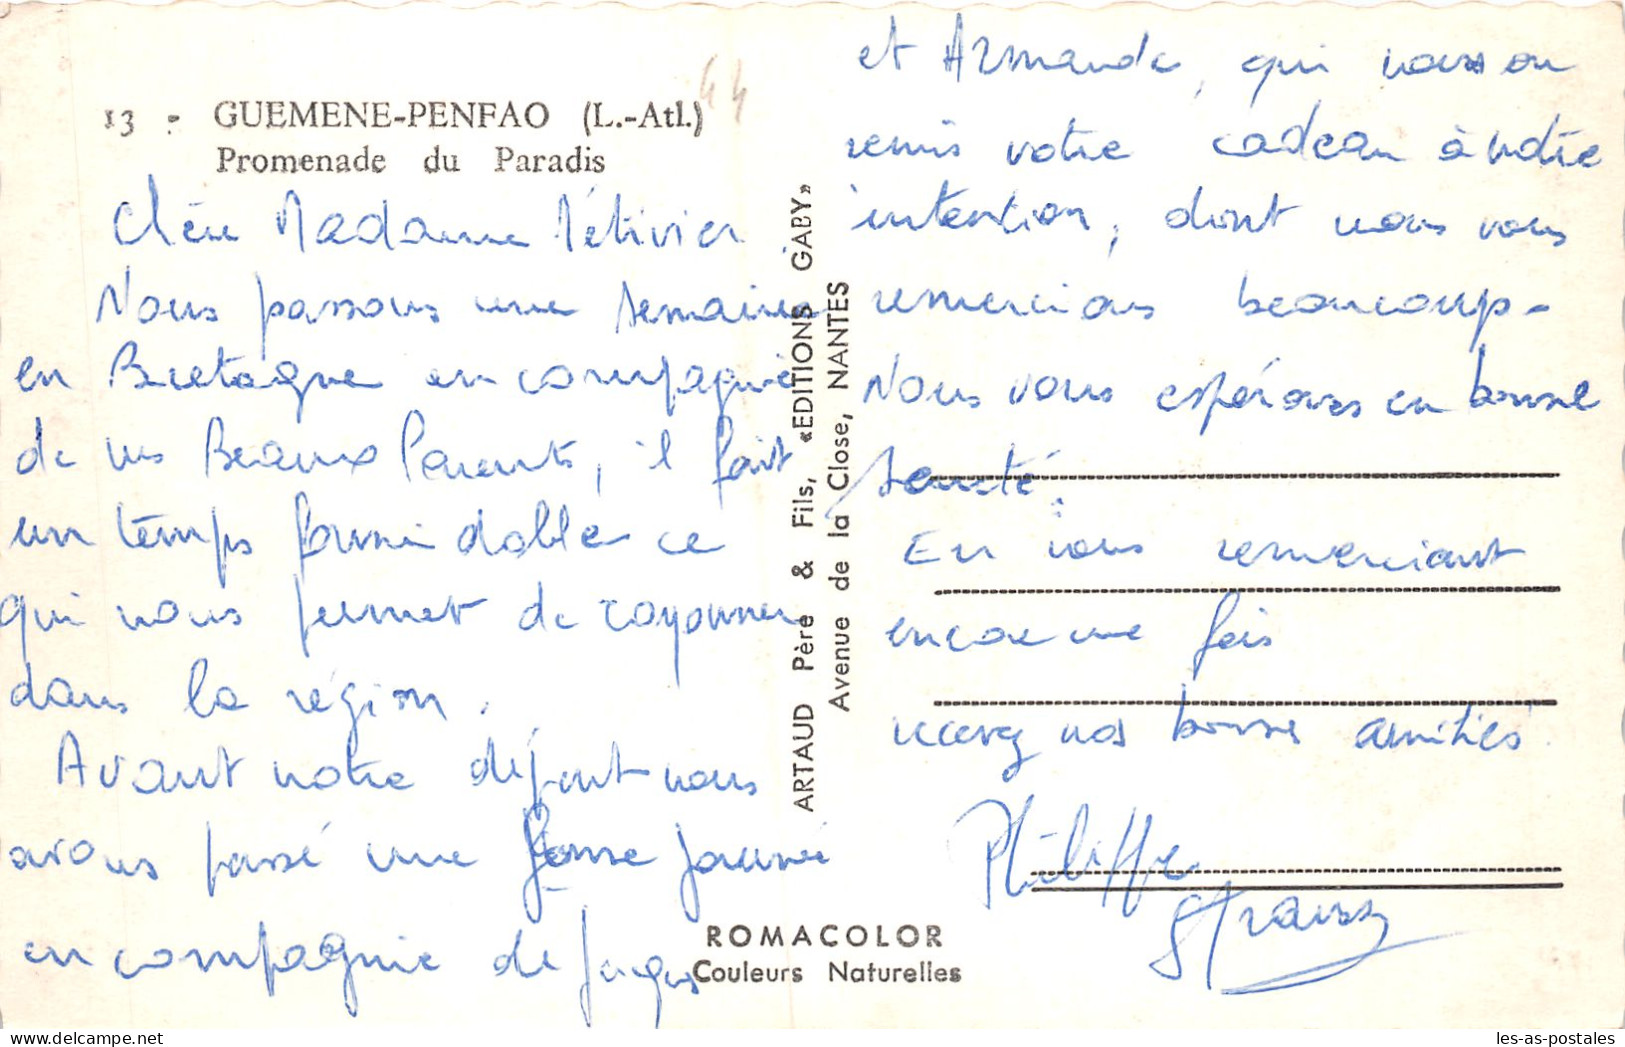 44
13 - GUEMENE-PENFAO (L.-Atl.)
Promenade du Paradis
Chère Madame Métivier
Nous passons une semaine
en Bretagne en compagnie
de mes Beaux Parents, il fait
un temps formidable ce
qui nous permet de rayonner
dans la région.
Avant notre départ nous
avons passé une bonne journée
en compagnie de Jacques
et Armande, qui nous on
remis votre cadeau à notre
intention, dont nous vous
remercions beaucoup-
Nous vous espérons en bonne
santé.
En vous remerciant
encore une fois
recevez nos bonnes amitiés
Philippe
ARTAUD Père & Fils, «EDITIONS GABY»
Avenue de la Close, NANTES
ROMACOLOR
Couleurs Naturelles
les-as-postales